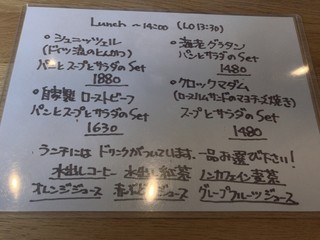 Lunch ～14:00 (LO 13:30)
・シュニッツェル
(ドイツ流のとんかつ)
パンとスープとサラダの Set
1880
・海老グラタン
パンとサラダの Set
1480
・自家製 ローストビーフ
パンとスープとサラダの Set
1630
・クロックマダム
(ロースハムサンドのマヨチーズ焼き)
スープとサラダの Set
1480
ランチには ドリンクがついています。一品お選び下さい!
水出しコーヒー 水出し紅茶 ノンカフェイン麦茶
オレンジジュース 赤ぶどうジュース グレープフルーツジュース